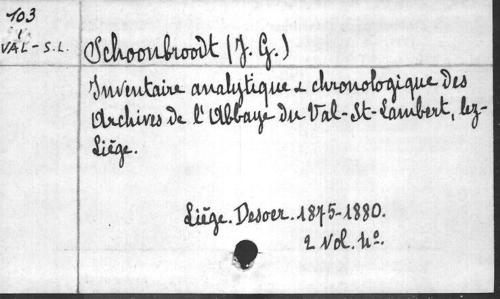 103
VAL-S.L.
Schoonbroodt (J. G.)
Inventaire analytique & chronologique des
Archives de l'Abbaye du Val-St-Lambert, lez-
Liège.
Liège. Desoer. 1875-1880.
2 vol. 4°.